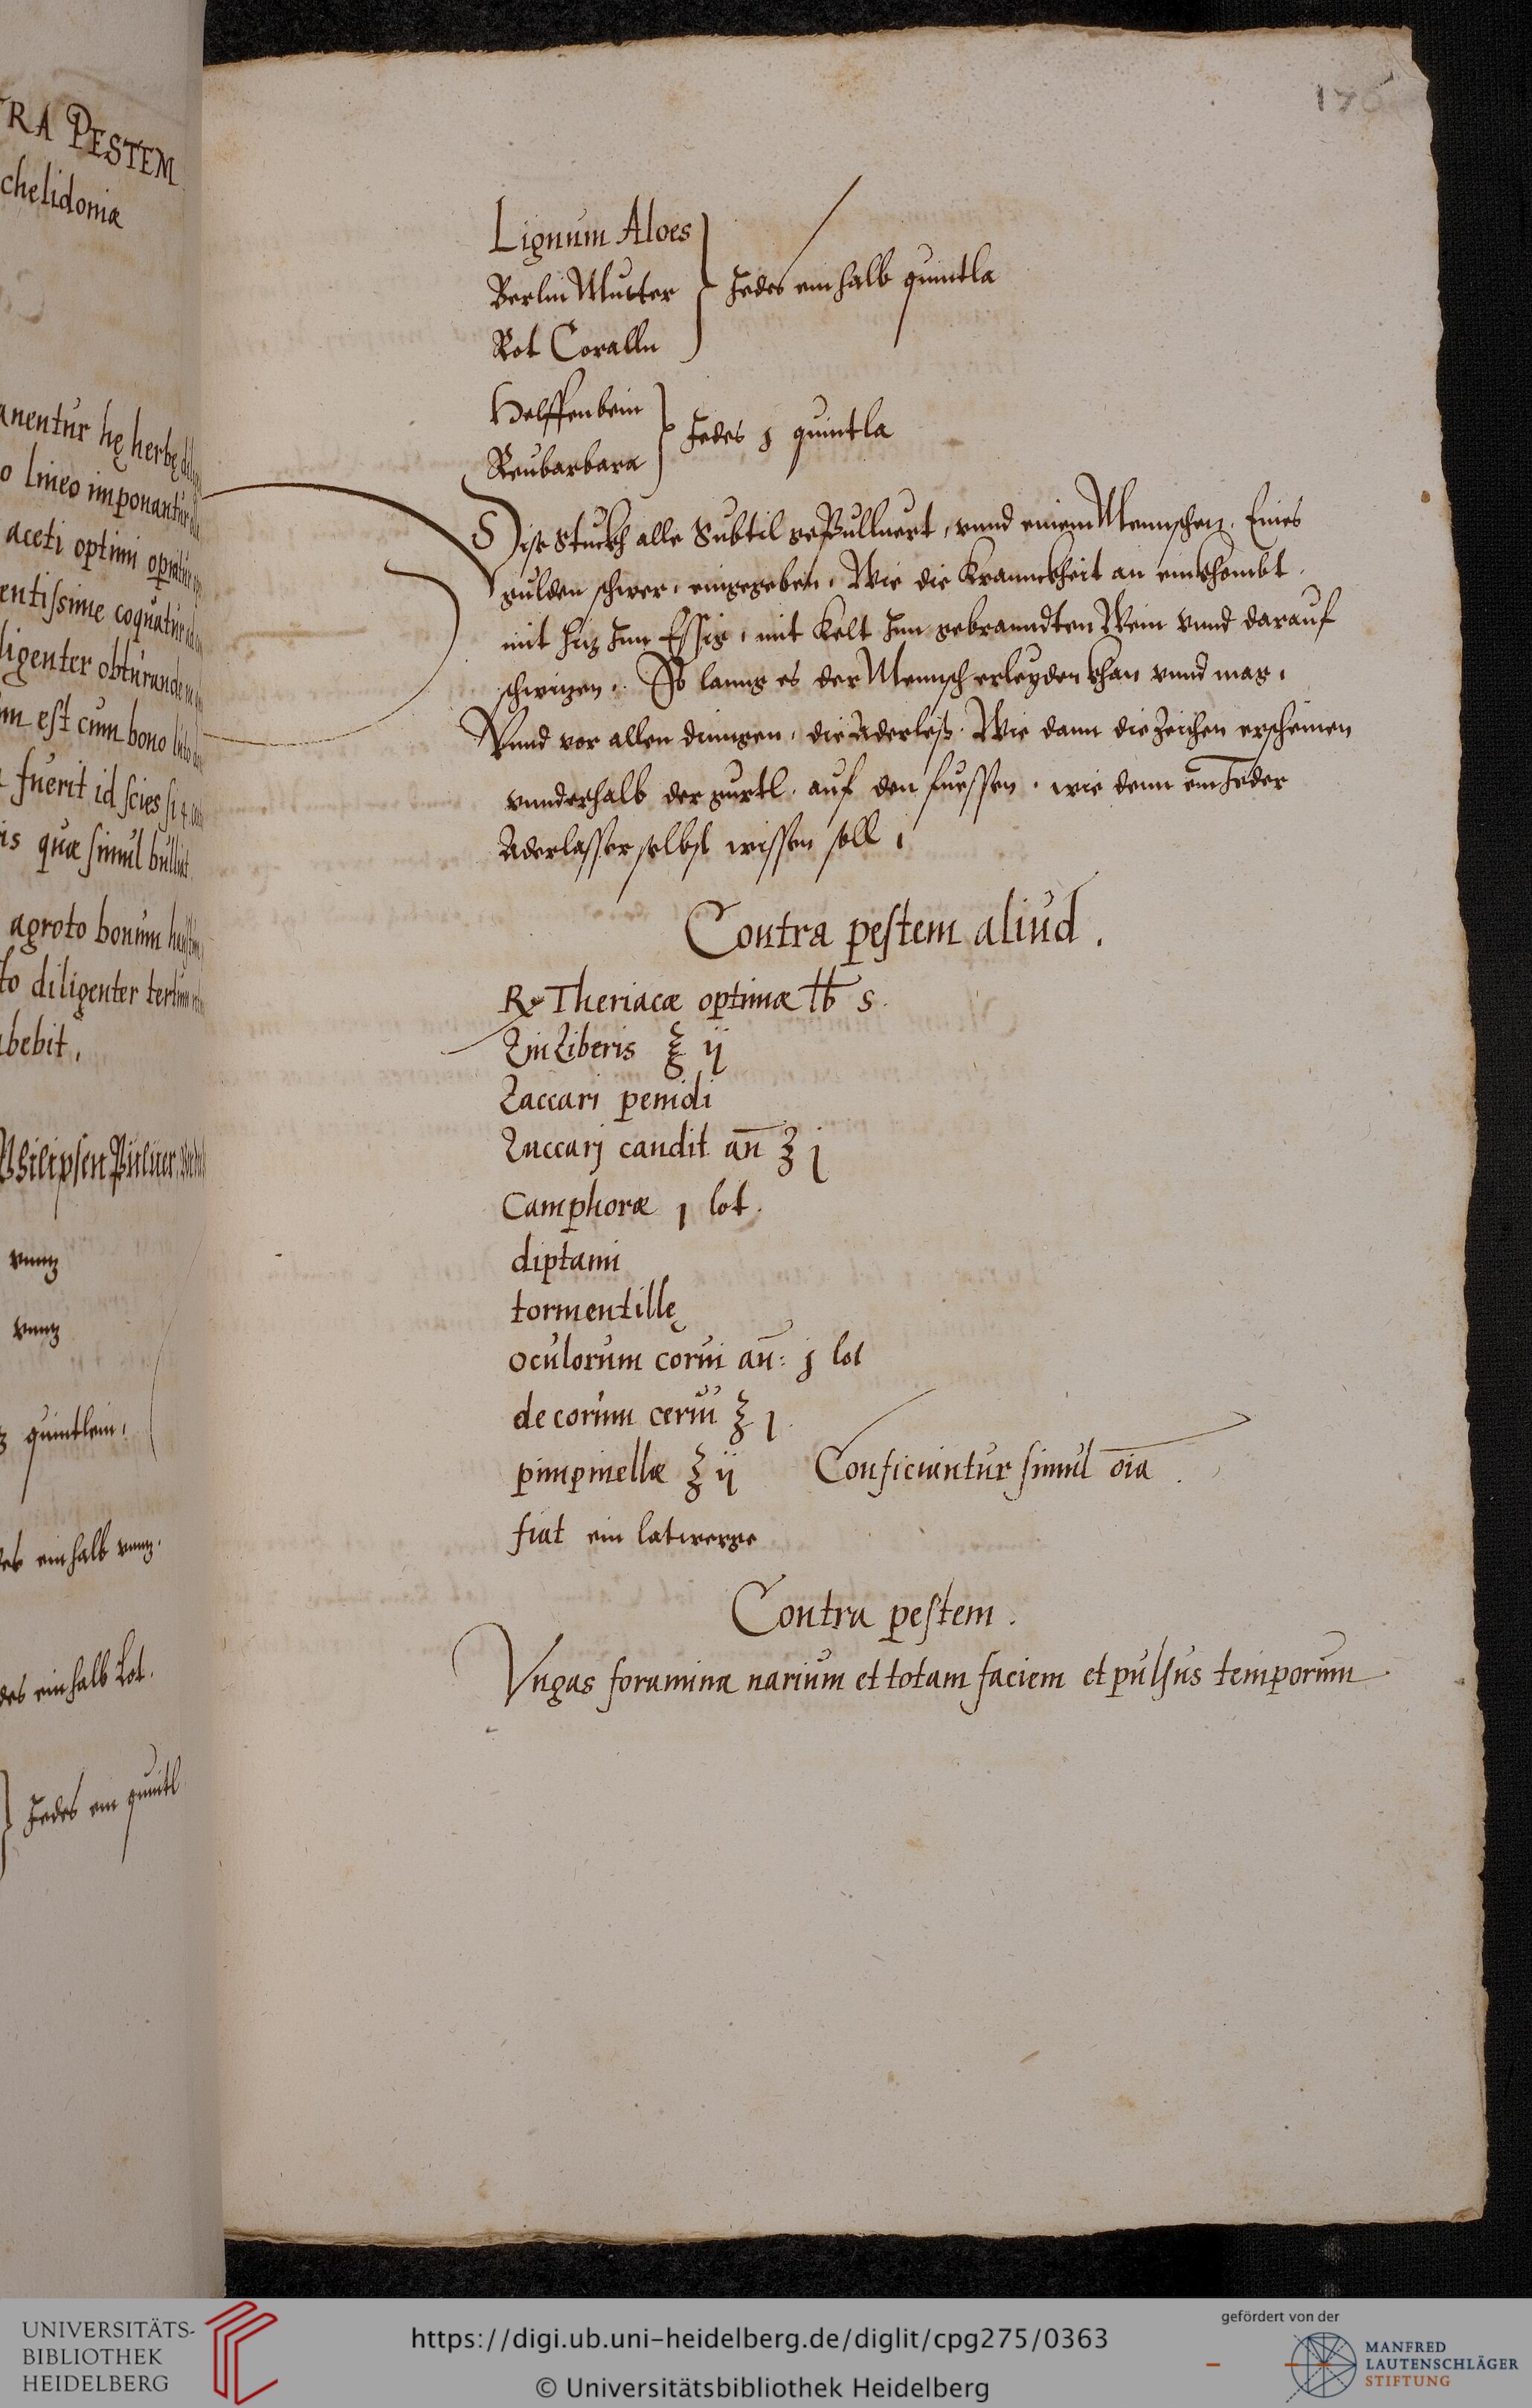 RA PESTEM
chelidoniæ
anentur hę herbę
o lineo imponantur
aceti optimi
entissime coquatur
ligenter obturande
m est cum bono luto
fuerit id scies si 4
is quæ simul bulliat
ægroto bonum
to diligenter
bebit,
Philipsen Puluer
vnntz
vnntz
quintlein,
einhalb vnntz.
des einhalb Lot.
Jedes ein quintl
176
Lignum Aloes
Berlin Mutter } Jedes ein halb quintla
Rot Coralln
Helffenbein
Reubarbara } Jedes j quintla
Dise stuckh alle Subtil gePulluert, vnnd einem Mennschen, Eines
gulden schwer, eingegeben, Wie die Krannckheit an ein khombt.
mit hiz Inn Essig, mit Kelt Inn gebranndten Wein vnnd darauf
schwizen, So lanng es der Mennsch erleyden khan vnnd mag,
Vnnd vor allen dinngen, die Aderlaß. Wie dann die Zeichen erscheinen
vnnderhalb der gurtl. auf den fuessen. wie denn ein Jeder
Aderlasser selbst wissen soll,
Contra pestem aliud.
℞ Theriacæ optimæ ℔ s.
Zinziberis ℥ ij
Zaccari penidi
Zuccarj candit an̄ ʒ j
Camphoræ j lot.
diptami
tormentillę
oculorum corui an̄: j lot
de corum cerui ʒ j.
pimpinellæ ʒ ij Conficiuntur simul o͞ia.
fiat ein latwerge
Contra pestem.
Vngas foramina narium et totam faciem et pulsus temporum
UNIVERSITÄTS-
BIBLIOTHEK
HEIDELBERG
https://digi.ub.uni-heidelberg.de/diglit/cpg275/0363
© Universitätsbibliothek Heidelberg
gefördert von der
MANFRED
LAUTENSCHLÄGER
STIFTUNG